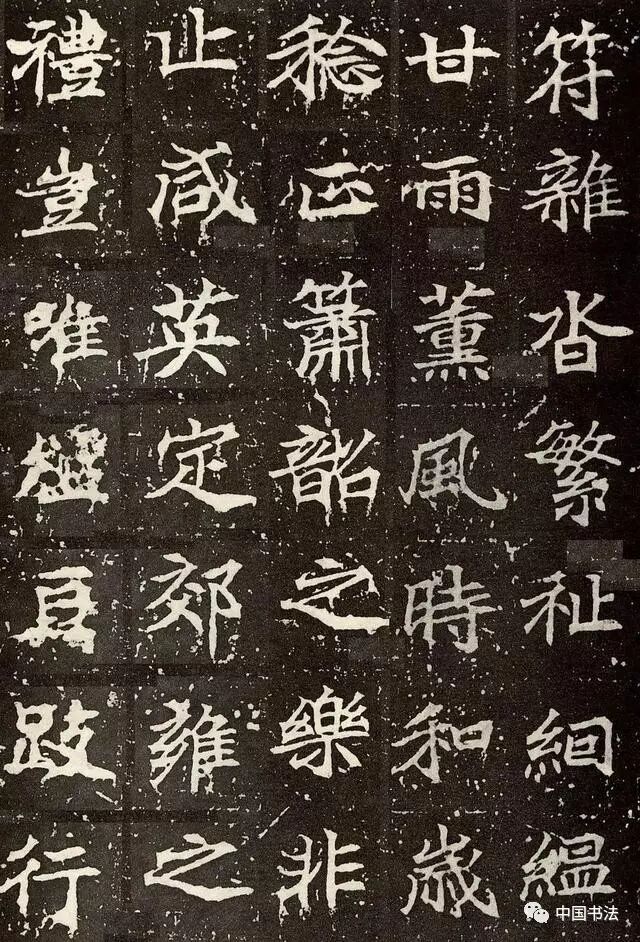 符雜沓繁祉絪縕
甘雨薰風時和歲
稔正簫韶之樂非
止咸英定郊雍之
禮豈唯榏豆跂行
中国书法